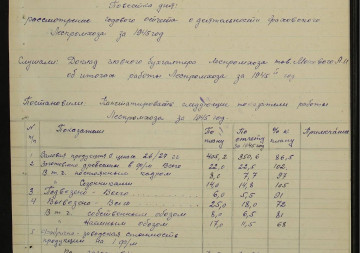 Повестка дня:
рассмотрение годового отчета о деятельности
Леспромхоза за 1945 год
Слушали: Доклад главного бухгалтера Леспромхоза тов.
об итогах работы Леспромхоза за 1945 год
Постановили: Констатировать следующие показатели работы
Леспромхоза за 1945 год.
№ п/п Показатели По плану По отчету за 1945 год % к плану Примечание
1 Валовая продукция в ценах 26/27 гг. 405,2 350,6 86,5
2 Заготовлено древесины в ф/м Всего 22,0 22,5 102,
В т.ч. постоянным кадром 8,0 7,7 97
Сезонниками 14,0 14,8 105
3 Подвезено - Всего 6,0 5,5 91
4 Вывезено - Всего 25,0 18,0 72
В т.ч. собственным обозом 8,0 6,5 81
Наемным обозом 17,0 11,5 68
5 Фабрично-заводская себестоимость
продукции на 1 ф/м